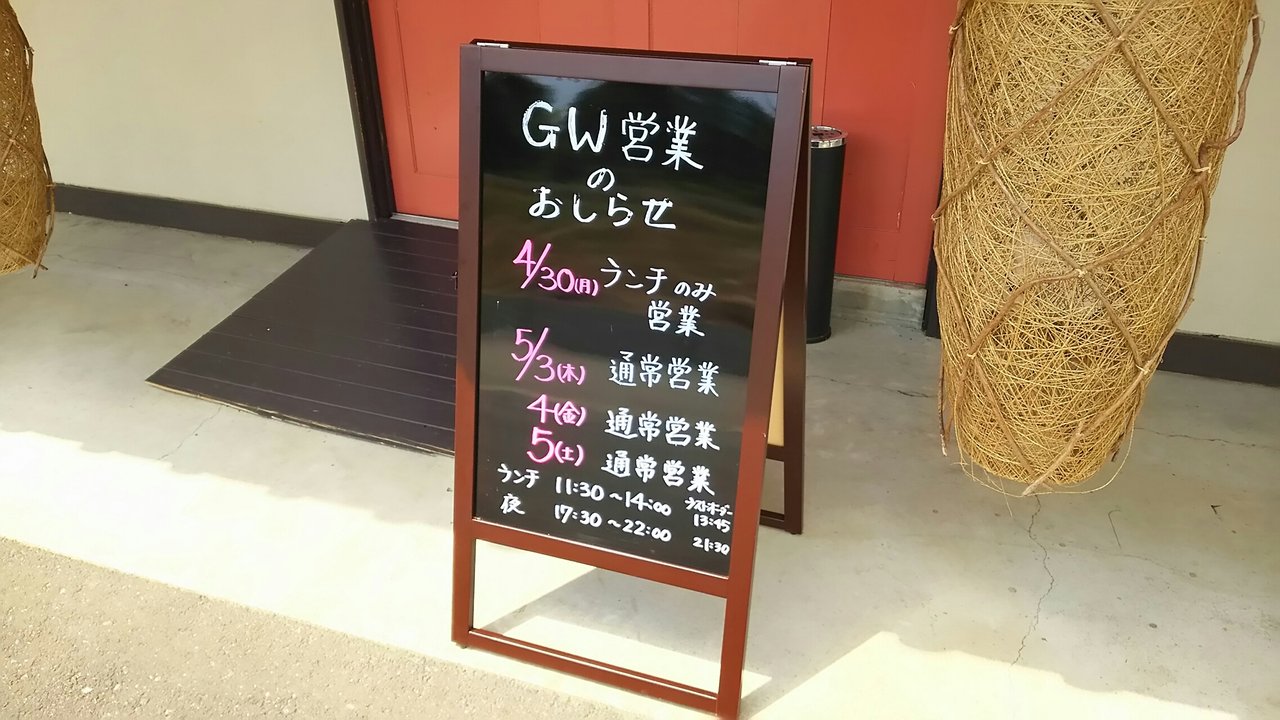 GW営業
の
おしらせ
4/30(月) ランチのみ
営業
5/3(木) 通常営業
4(金) 通常営業
5(土) 通常営業
ランチ 11:30～14:00 ラストオーダー 13:45
夜 17:30～22:00 21:30